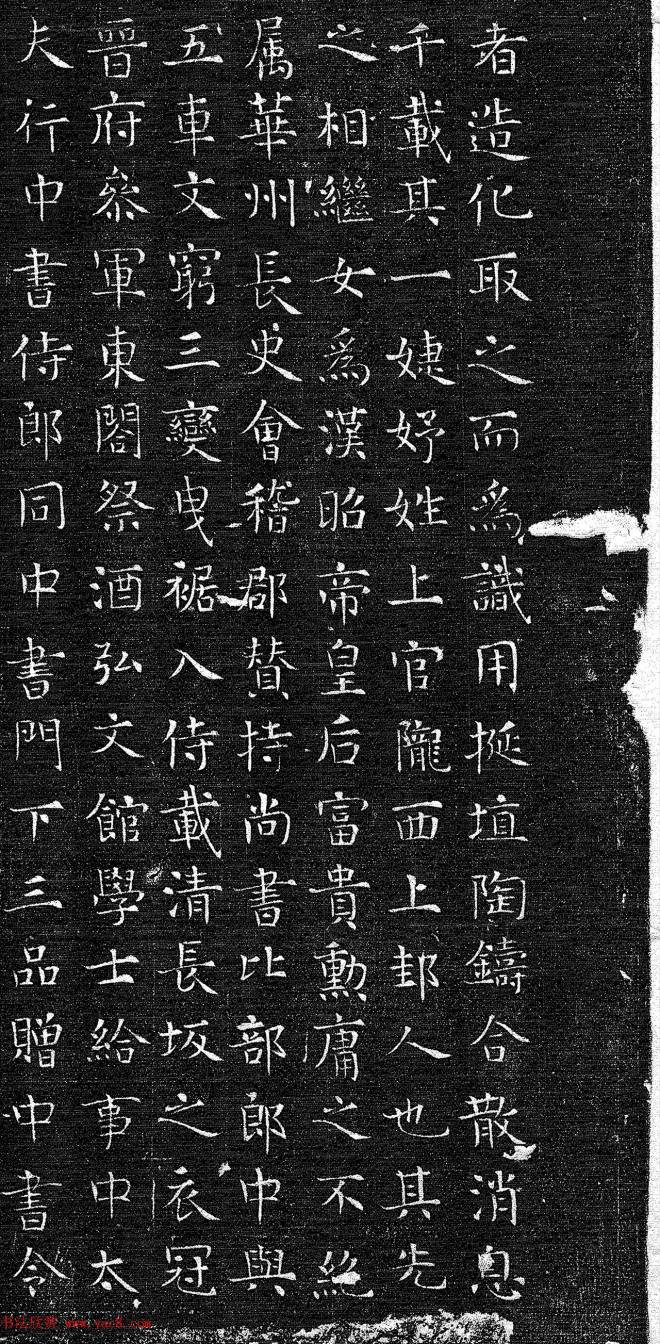 者造化取之而為識用挻埴陶鑄合散消息
千載其一婕妤姓上官隴西上邽人也其先
之相繼女為漢昭帝皇后富貴勳庸之不絕
属華州長史會稽郡賛持尚書比部郎中與
五車文窮三變曳裾入侍載清長坂之衣冠
晉府叅軍東閤祭酒弘文館學士給事中太
夫行中書侍郎同中書門下三品贈中書令
书法欣赏 www.yac8.com